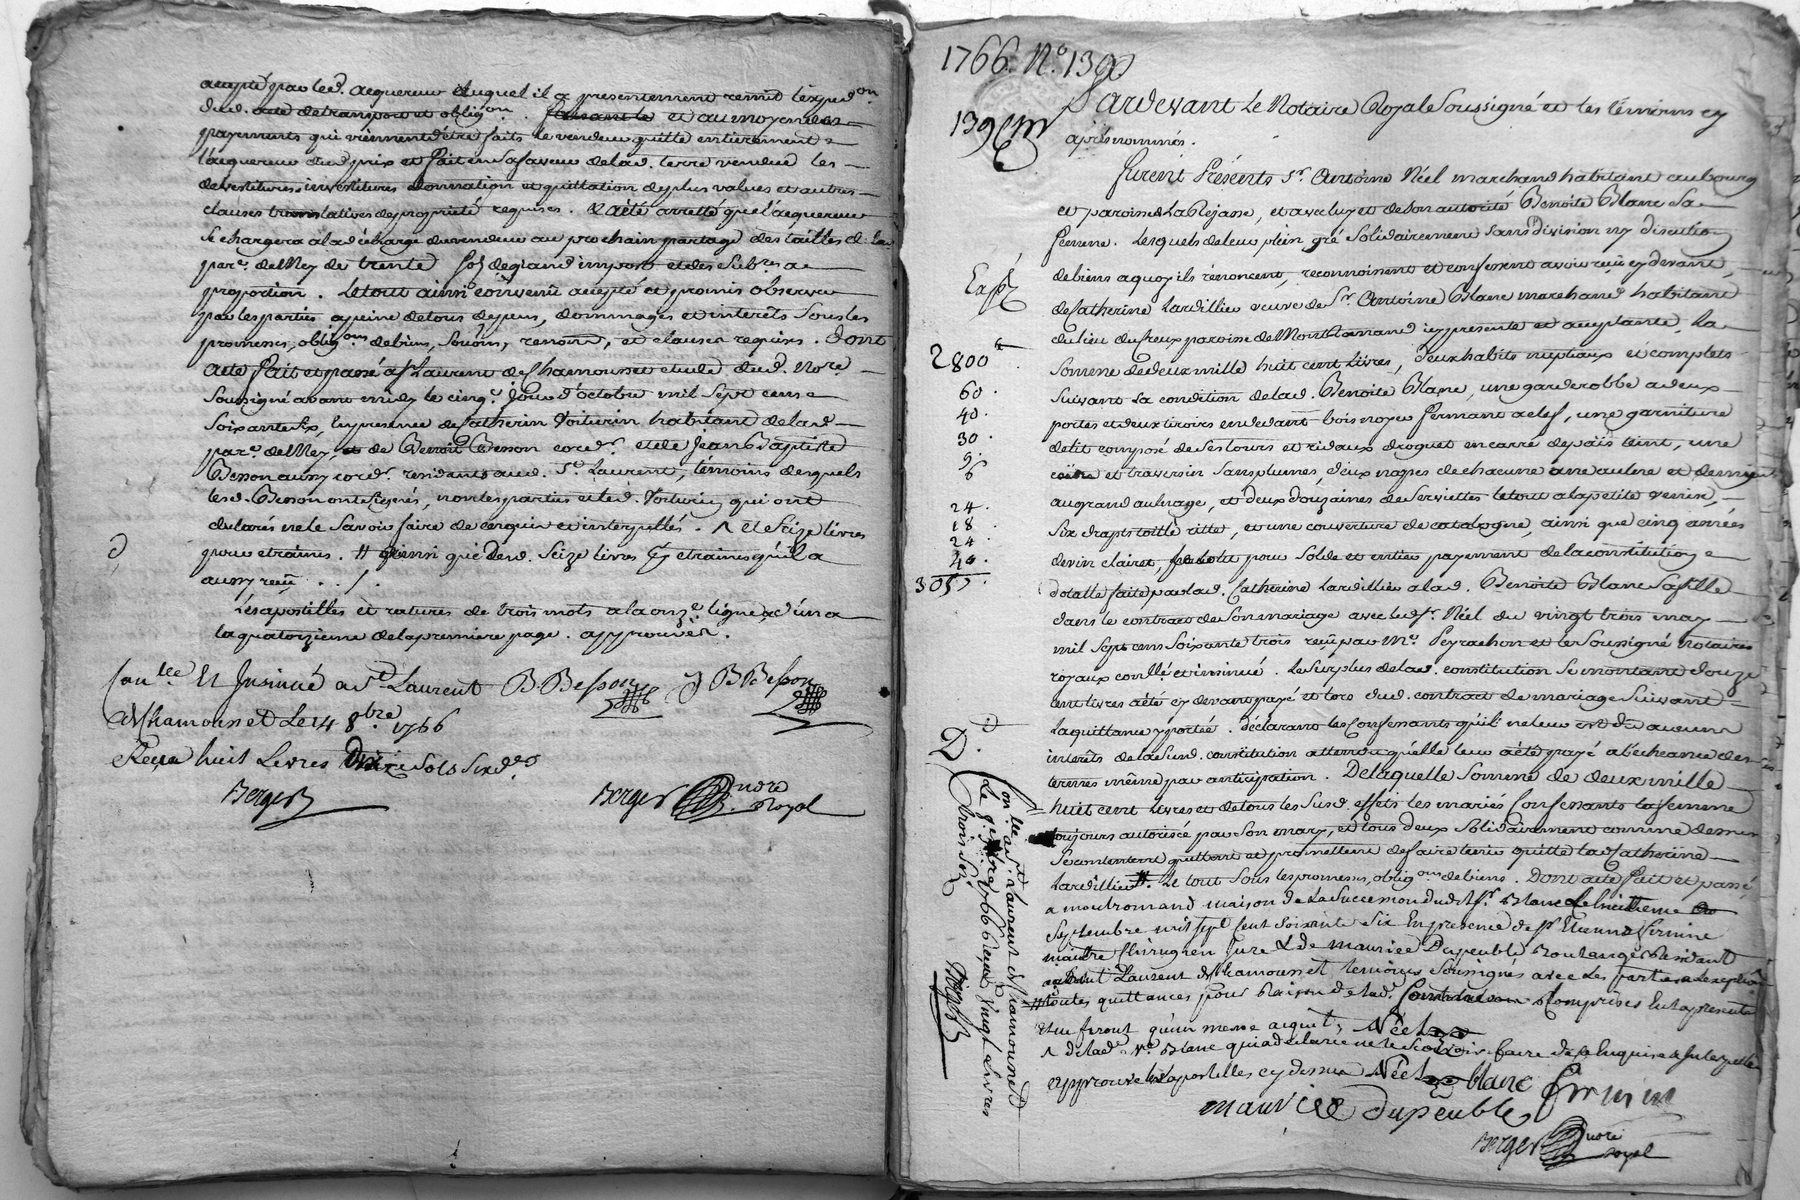 accepté par led. acquereur auquel il a presentement remis l'expedon
dud. acte de transport et obligon. faisant le et au moyen des
payements qui viennent d'être faits le vendeur quitte entierement
l'acquereur dud. prix et fait en sa faveur de lad. terre vendue les
devestitures, investitures donnation et quittation de plus values et autres
clauses translatives de propriété requises. Et a été arretté que l'acquereur
se chargera a la décharge du vendeur au prochain partage des tailles de lad.
parse. de Mey de trente sols de grand impost et des subres a
proportion. Le tout ainsi convenu accepté et promis observer
par les parties a peine de tous depens, dommages et interêts sous les
promesses, obligons de biens, soumons, renons, et clauses requises. Dont
acte fait et passé a St. Laurent de Chamousset etude dud. Nore.
soussigné avant midy le cinqe. jour d'octobre mil sept cens
soixante six, en presence de Catherin Voiturin habitant de lad.
parse. de Mey, et de Benoit Besson cordr. et de Jean Baptiste
Besson aussy cordr. residants aud. St. Laurent, témoins desquels
lesd. Besson ont signés, non les parties et led. Voiturin qui ont
declarés ne le savoir faire de ce enquis et interpellés. et seize livres
pour etraines. # ainsi que desd. seize livres d'etraines qu'il a
aussy reçu . . /.
Les apostilles et ratures de trois mots a la onze. ligne et d'un a
la quatorzieme de la premiere page. approuvées.
Conllé Et Insinué a St. Laurent B Besson J B Besson
de Chamousset Le 14 8bre 1766
Reçu huit Livres Dix Sols six drs
Berger Berger Nore Royal
1766. N.º 139
139e
Pardevant Le Notaire Royal Soussigné et les témoins cy
après nommés.
Furent Présents Sr. Antoine Néel marchand habitant au bourg
et paroisse de la Rejasse, et avec luy et de son autorité Benoite Blanc sa
femme. Lesquels de leur plein gré solidairement sans division ny discution
de biens a quoy ils rénoncent, reconnoissent et confessent avoir reçu cy devant,
Expé
de Catherine Lardillier veuve de Sr. Antoine Blanc marchand habitant
du lieu du Creux paroisse de Montromand icy presente et acceptante, la
2800 tt
somme de deux mille huit cent livres, deux habits nuptiaux et complets
60.
suivant la condition de lad. Benoite Blanc, une garderobbe a deux
40.
portes et deux tiroirs en devant bois noyer fermant a clef, une garniture
30.
de lit composé de ses tours et rideaux droguet en carré de païs teint, une
9.
6
coitre et traversin sans plumes, deux napes de chacune une aulne et demy
au grand aulnage, et deux douzaines de serviettes le tout a la petite venise,
24.
18.
six draps toille ritte, et une couverture de catalogne, ainsi que cinq années
24.
40.
de vin clairet, pour solde et entier payement de la constitution
3051.
dotalle faite par lad. Catherine Lardillier a lad. Benoite Blanc sa fille
dans le contract de son mariage avec led. Sr. Néel du vingt trois may
mil sept cens soixante trois reçu par Me. Peyrachon et le Soussigné notaires
royaux conllé et insinué. Le surplus de lad. constitution se montant douze
cent livres a été cy devant payé et lors dud. contract de mariage suivant
la quittance y portée. Déclarans les confessants qu'il ne leur est dû aucuns
interêts de lad. susd. constitution attendu qu'elle leur a été payé a l'écheance des
termes même par anticipation. De laquelle somme de deux mille
huit cent livres et de tous les susd. effets les mariés confessants la femme
toujours autorisée par son mary, et tous deux solidairement comme dessus
se contentent quittent et promettent de faire tenir quitte lad. Catherine
Lardillier #. Le tout sous les promesses, obligons de biens. Dont acte fait et passé
a montromand maison de la succession dud. Sr. Blanc Le huitieme
septembre mil sept cent soixante six En presence de Sr. Etienne Firmine
maitre Chirurgien Juré & de maurice Dupeuble Boulanger Residant
a St. Laurent de Chamousset temoins soussignés avec Les parties a l'exception
# toutes quittances pour Raison de lad. Constitution Comprises En la presente
et ne feront qu'un meme acquit, Néel
de lad. ve. Blanc qui a declaré ne le Sçavoir faire de ce Enquise & Interpellée
approuvé les apostilles cy dessus Néel blanc Firmin
maurice dupeuble
Berger Nore Royal
Conllé a St. Laurent de Chamousset
Le 9e 7bre 1766 Recu vingt Livres
trois sols
Berger